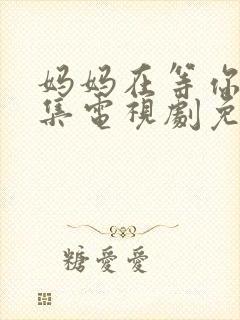 妈妈在等你
集電視劇免
糖愛愛